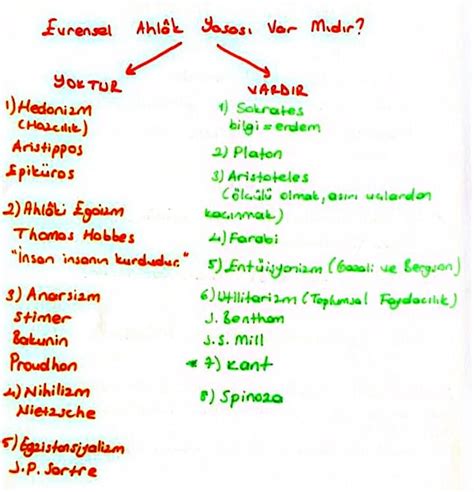 Evrensel Ahlâk Yasası Var Mıdır?
YOKTUR
1) Hedonizm
(Hazcılık)
Aristippos
Epiküros
2) Ahlâki Egoizm
Thomas Hobbes
"İnsan insanın kurdudur."
3) Anarşizm
Stirner
Bakunin
Proudhon
4) Nihilizm
Nietzsche
5) Egzistansiyalizm
J.P. Sartre
VARDIR
1) Sokrates
bilgi = erdem
2) Platon
3) Aristoteles
(ölçülü olmak, aşırı uçlardan
kaçınmak)
4) Farabi
5) Entüisyonizm (Gazali ve Bergson)
6) Utilitarizm (Toplumsal Faydacılık)
J. Bentham
J.S. Mill
7) Kant
8) Spinoza